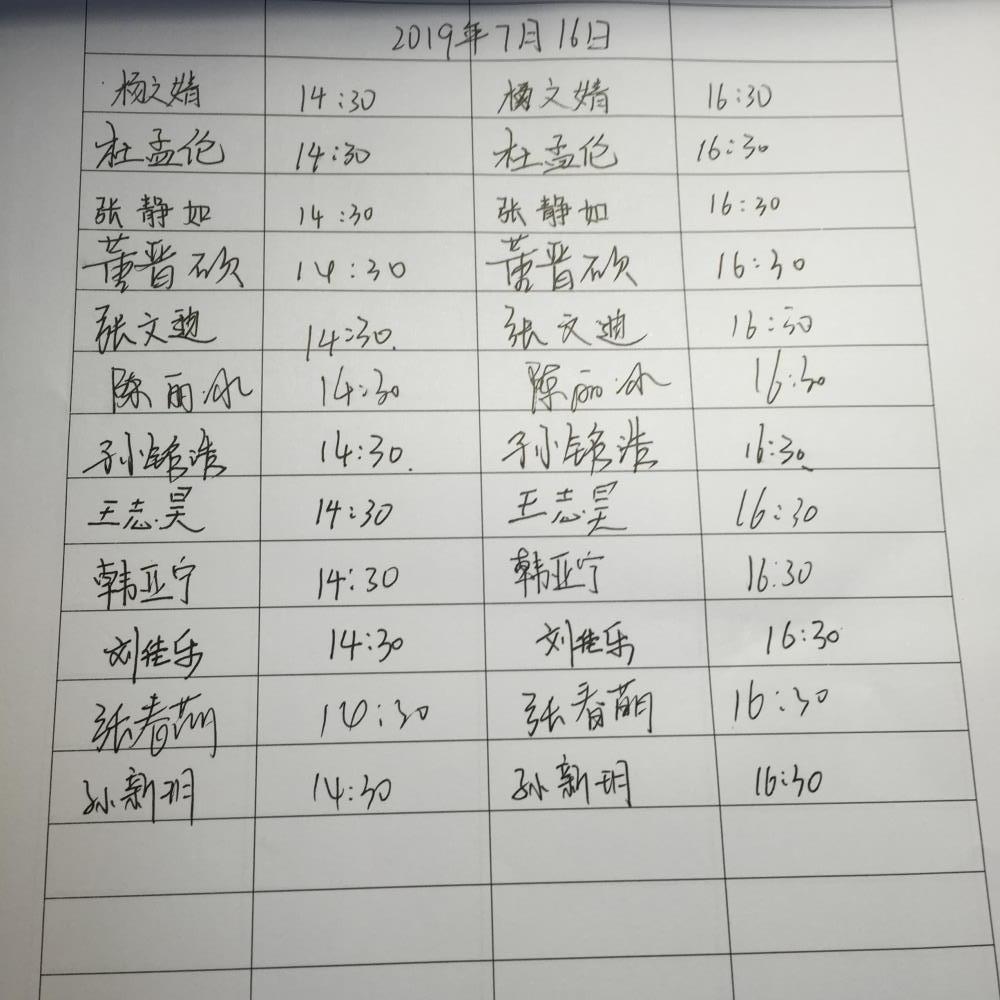 2019年7月16日
杨文婧 14:30 杨文婧 16:30
杜孟伦 14:30 杜孟伦 16:30
张静如 14:30 张静如 16:30
董晋硕 14:30 董晋硕 16:30
张文迪 14:30. 张文迪 16:30
陈丽冰 14:30 陈丽冰 16:30
孙锦浩 14:30. 孙锦浩 16:30.
王志昊 14:30 王志昊 16:30
韩亚宁 14:30 韩亚宁 16:30
刘佳乐 14:30 刘佳乐 16:30
张春萌 14:30 张春萌 16:30
孙新玥 14:30 孙新玥 16:30